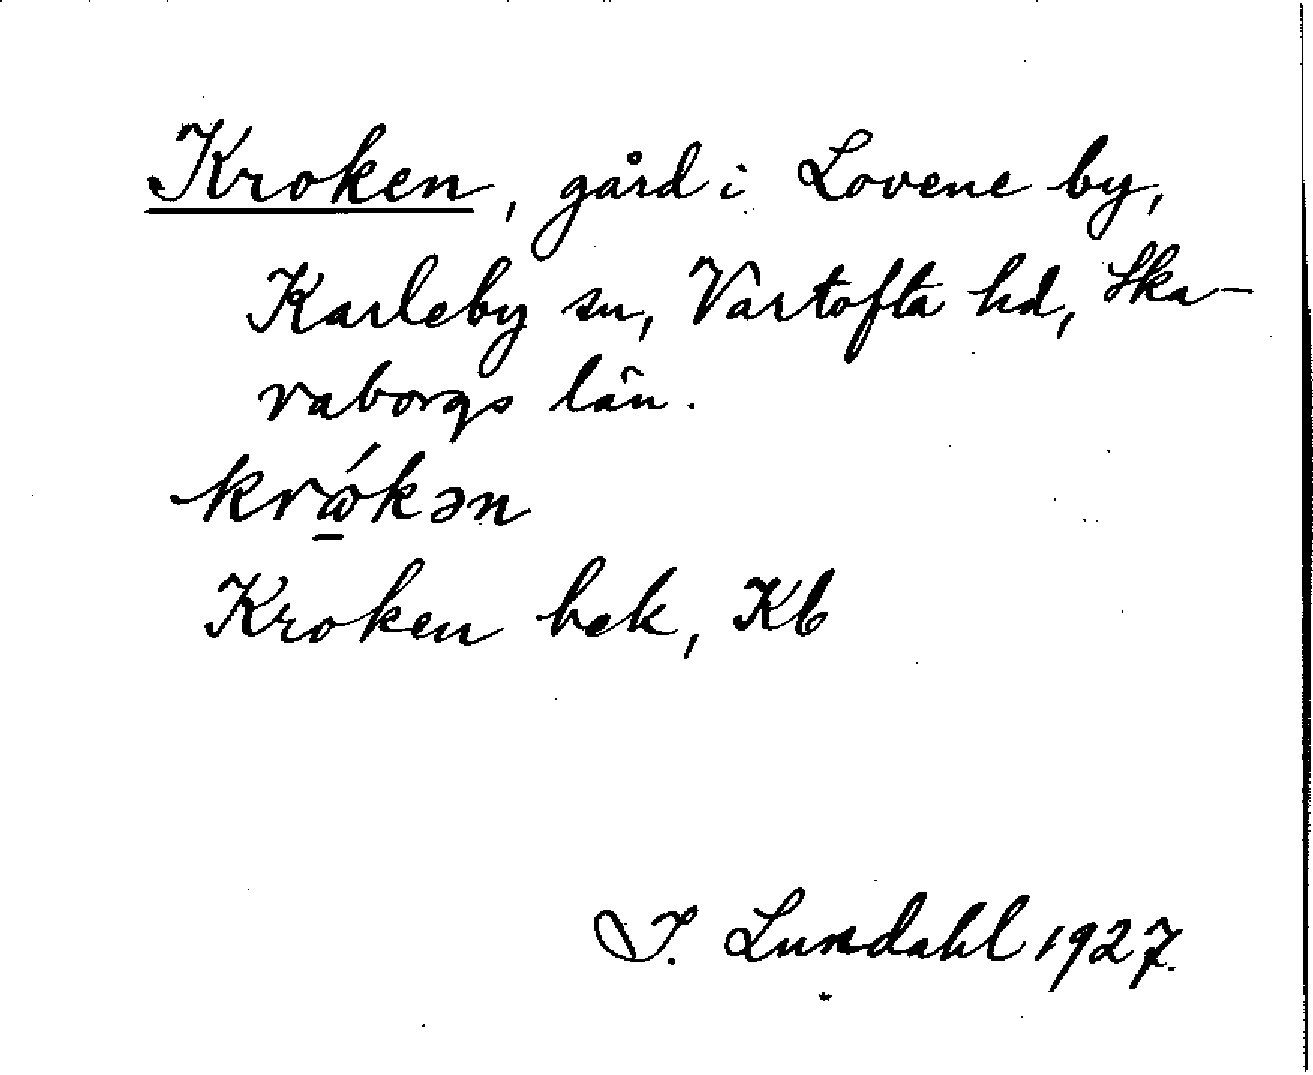 Kroken, gård i Lovene by,
Karleby sn, Vartofta hd, Ska-
raborgs län.
krώ̱kən
Kroken bek, Kb
I. Lundahl 1927.